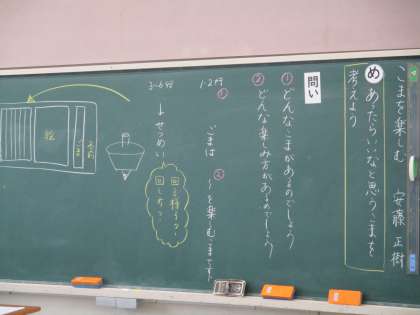 こまを楽しむ 安藤正樹
め あったらいいなと思うこまを
考えよう
問い
① どんなこまがあるのでしょう
② どんな楽しみ方があるのでしょう
1・2行
①
こまは ②〜を楽しむこまです。
3〜6行
↓せつめい
回る様子
回し方
名前
こま
絵